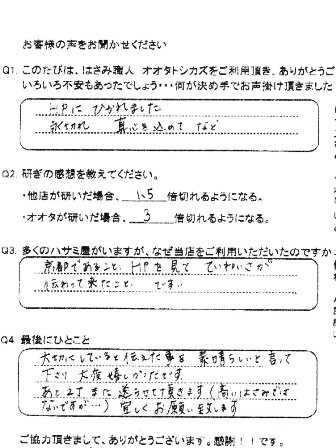 お客様の声をお聞かせください
Q1. このたびは、はさみ職人 オオタトシカズをご利用頂き、ありがとうご
いろいろ不安もあったでしょう・・・何が決め手でお声掛け頂きました
HPに ひかれました
永切れ 真心を込めて など
Q2. 研ぎの感想を教えてください。
・他店が研いだ場合、1.5倍切れるようになる。
・オオタが研いだ場合、3倍切れるようになる。
Q3. 多くのハサミ屋がいますが、なぜ当店をご利用いただいたのですか
京都であること、HPを見て ていねいさが
伝わって来たこと です
Q4 最後にひとこと
大切くしていると伝えた事を 素晴らしいと言って
下さり 大変嬉しかったです
あと2丁 また 送らせて頂きます(高いはさみでは
ないですが…) 宜しくお願い致します
ご協力頂きまして、ありがとうございます。感謝!!です。